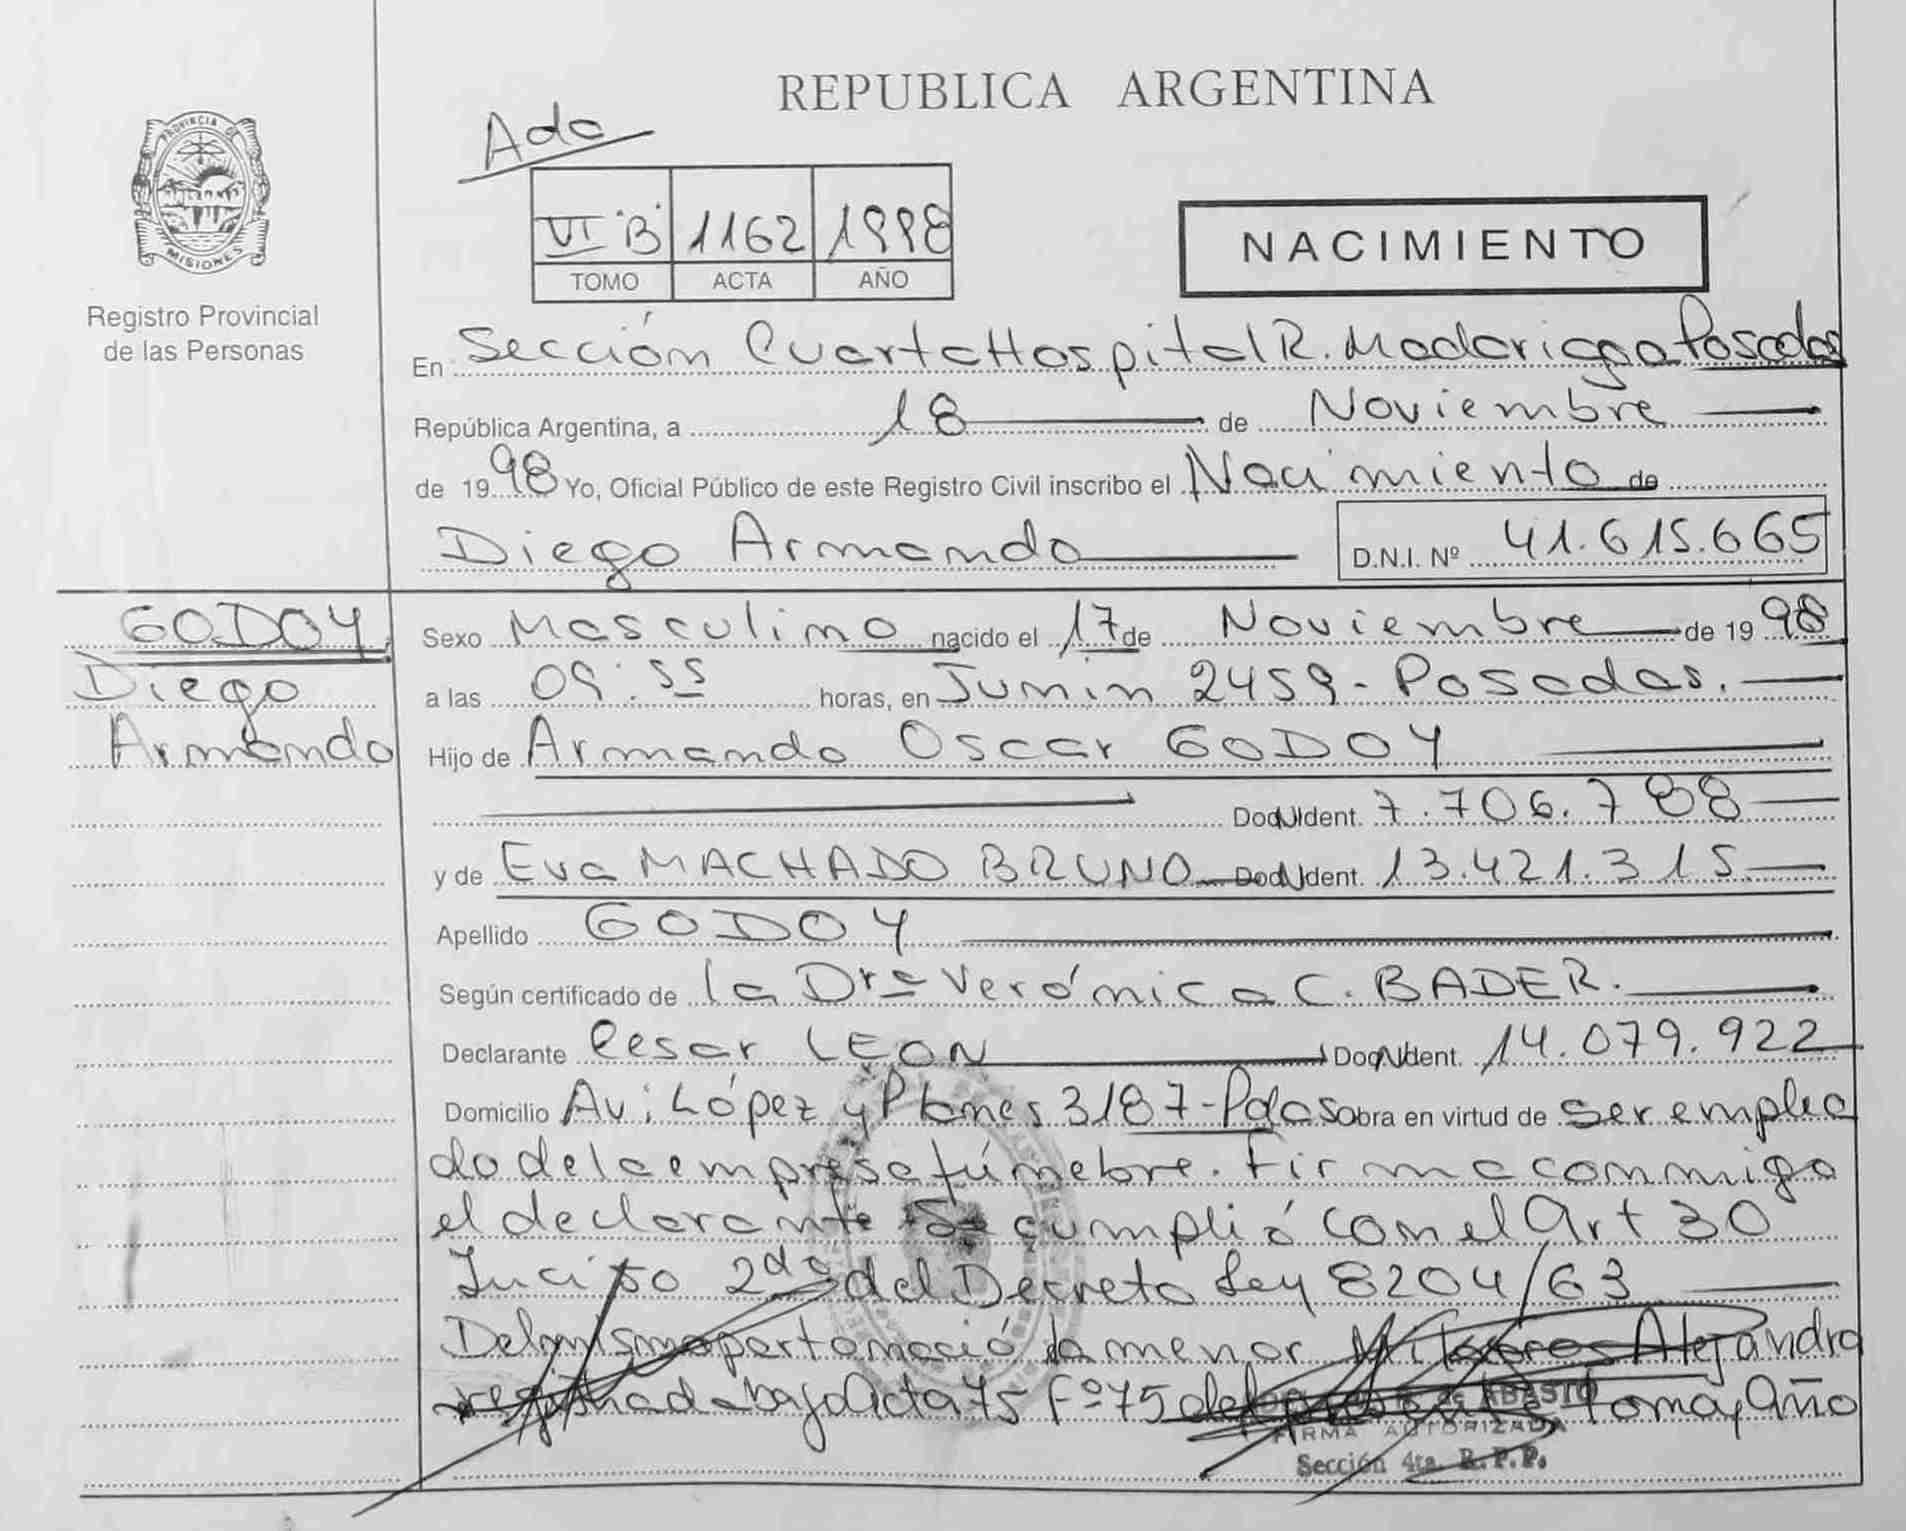 REPUBLICA ARGENTINA
Ada
PROVINCIA DE
MISIONES
Registro Provincial
de las Personas
VI "B" 1162 1998
TOMO ACTA AÑO
NACIMIENTO
En Sección Cuarta Hospital R. Madariaga Posadas
República Argentina, a 18 de Noviembre
de 1998 Yo, Oficial Público de este Registro Civil inscribo el Nacimiento de
Diego Armando D.N.I. Nº 41.615.665
GODOY
Diego
Armando
Sexo Masculino nacido el 17 de Noviembre de 1998
a las 09:55 horas, en Junin 2459 - Posadas.
Hijo de Armando Oscar GODOY
Ident. 7.706.788
y de Eva MACHADO BRUNO Ident. 13.421.315
Apellido GODOY
Según certificado de la Dra Verónica C. BADER.
Declarante Cesar LEON Ident. 14.079.922
Domicilio Av. López y Planes 3187 - Pdas obra en virtud de ser emplea
do de la empresa fúnebre. Firma conmigo
el declarante Se cumplió con el Art 30
Inciso 2do del Decreto Ley 8204/63
Del mismo parto nació la menor Milagros Alejandra
registrada bajo Acta 75 Fº 75 del presente Tomo y Año
de ABASTO
FIRMA AUTORIZADA
Sección 4ta. R.P.P.